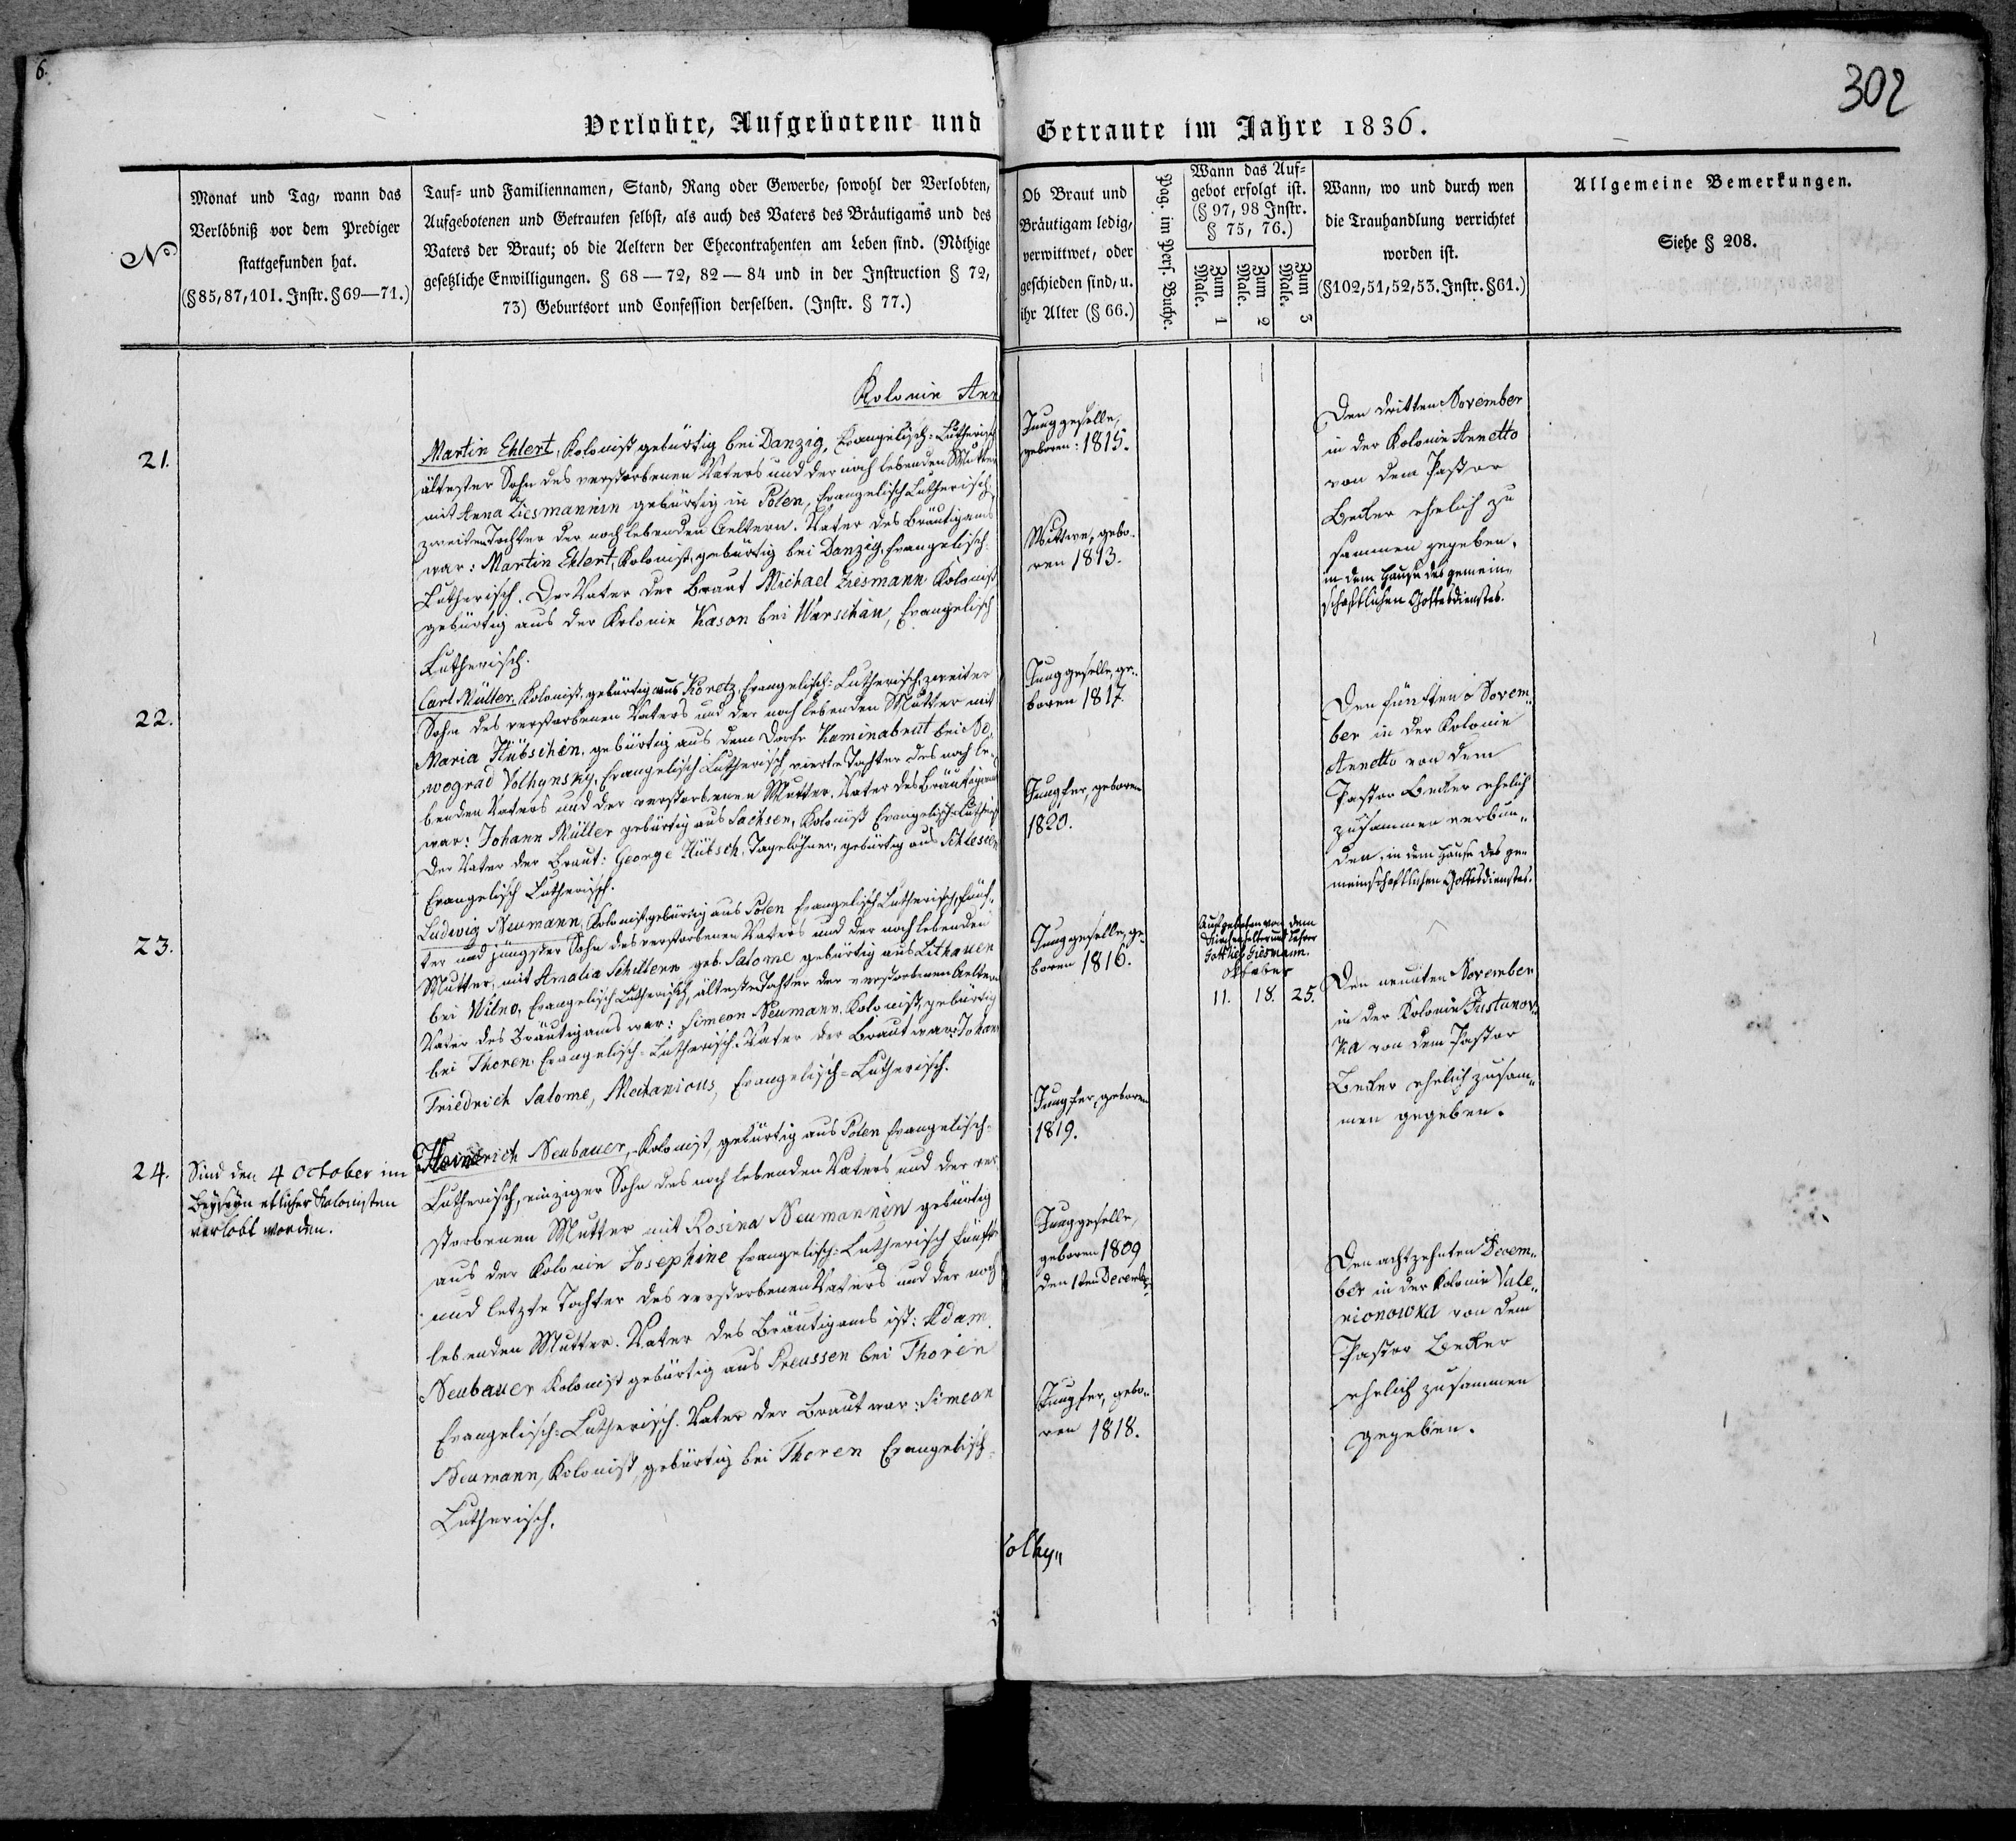 6.
302
Verlobte, Aufgebotene und Getraute im Jahre 1836.
No
Monat und Tag, wann das
Verlöbniß vor dem Prediger
stattgefunden hat.
(§85, 87, 101. Instr. §69—71.)
Tauf- und Familiennamen, Stand, Rang oder Gewerbe, sowohl der Verlobten,
Aufgebotenen und Getrauten selbst, als auch des Vaters des Bräutigams und des
Vaters der Braut; ob die Aeltern der Ehecontrahenten am Leben sind. (Nöthige
gesetzliche Enwilligungen. § 68—72, 82—84 und in der Instruction § 72,
73) Geburtsort und Confession derselben. (Instr. § 77.)
Ob Braut und
Bräutigam ledig,
verwittwet, oder
geschieden sind, u.
ihr Alter (§ 66.)
Pag. im Pers. Buche.
Wann das Auf-
gebot erfolgt ist.
(§ 97, 98 Instr.
§ 75, 76.)
Zum 1 Male.
Zum 2 Male.
Zum 3 Male.
Wann, wo und durch wen
die Trauhandlung verrichtet
worden ist.
(§102, 51, 52, 53. Instr. §61.)
Allgemeine Bemerkungen.
Siehe § 208.
Kolonie Ann
21.
Martin Ehlert, Kolonist gebürtig bei Danzig, Evangelisch-Lutherisch
ältester Sohn des verstorbenen Vaters und der noch lebenden Mutter
mit Anna Ziesmannin gebürtig in Polen, Evangelisch Lutherisch,
zweiten Tochter der noch lebenden Aeltern. Vater des Bräutigams
war: Martin Ehlert, Kolonist, gebürtig bei Danzig, Evangelisch-
Lutherisch. Der Vater der Braut Michael Ziesmann Kolonist,
gebürtig aus der Kolonie Kason bei Warschau, Evangelisch
Lutherisch.
Junggeselle,
geboren: 1815.
Wittwe, gebo-
ren 1813.
Den dritten November
in der Kolonie Annetto
von dem Pastor
Becker ehelich zu
sammen gegeben,
in dem Hause des gemein-
schaftlichen Gottesdienstes.
22.
Carl Müller, Kolonist, gebürtig aus Koretz, Evangelisch-Lutherisch, zweiter
Sohn des verstorbenen Vaters und der noch lebenden Mutter mit
Maria Hübschin, gebürtig aus dem Dorfe Kaminabrut bei No-
wograd Volhynsky, Evangelisch Lutherisch vierte Tochter des noch le-
benden Vaters und der verstorbenen Mutter. Vater des Bräutigams
war: Johann Müller gebürtig aus Sachsen, Kolonist Evangelisch-Lutherisch
Der Vater der Braut: George Hübsch, Tagelöhner, gebürtig aus Schlesien
Evangelisch Lutherisch.
Junggeselle, ge-
boren 1817.
Jungfer, geboren
1820.
Den fünften Novem-
ber in der Kolonie
Annetto von dem
Pastor Becker ehelich
zusammen verbun-
den, in dem Hause des ge-
meinschaftlichen Gottesdienstes.
23.
Ludwig Neumann, Kolonist, gebürtig aus Polen Evangelisch Lutherisch, fünf-
ter und jüngster Sohn des verstorbenen Vaters und der noch lebenden
Mutter, mit Amalia Schiltern geb. Salome gebürtig aus Lithauen
bei Wilno, Evangelisch Lutherisch, älteste Tochter der verstorbenen Aeltern
Vater des Bräutigams war: Simeon Neumann, Kolonist, gebürtig
bei Thoren, Evangelisch-Lutherisch. Vater der Braut war: Johann
Friedrich Salome, Mechanicus, Evangelisch-Lutherisch.
Junggeselle, ge-
boren 1816.
Jungfer, geboren
1819.
Aufgeboten von dem
Kirchenältern und Lehrer
Gottlieb Giesmann.
Oktober
11. 18. 25.
Den neunten November
in der Kolonie Justanov-
ka von dem Pastor
Becker ehelich zusam-
men gegeben.
24.
Sind den 4 October im
Beyseyn etlicher Kolonisten
verlobt worden.
Heindrich Neubauer, Kolonist, gebürtig aus Polen Evangelisch-
Lutherisch, einziger Sohn des noch lebenden Vaters und der ver-
storbenen Mutter mit Rosina Neumannin gebürtig
aus der Kolonie Josephine Evangelisch-Lutherisch fünfte
und letzte Tochter des verstorbenen Vaters und der noch
lebenden Mutter. Vater des Bräutigams ist: Adam
Neubauer Kolonist gebürtig aus Preussen bei Thoren
Evangelisch-Lutherisch. Vater der Braut war: Simeon
Neumann, Kolonist, gebürtig bei Thoren Evangelisch-
Lutherisch.
Junggeselle,
geboren 1809
den 1ten Decemb.
Jungfer, gebo-
ren 1818.
Den achtzehnten Decem-
ber in der Kolonie Vale-
rionowka von dem
Pastor Becker
ehelich zusammen
gegeben.
Volhy-